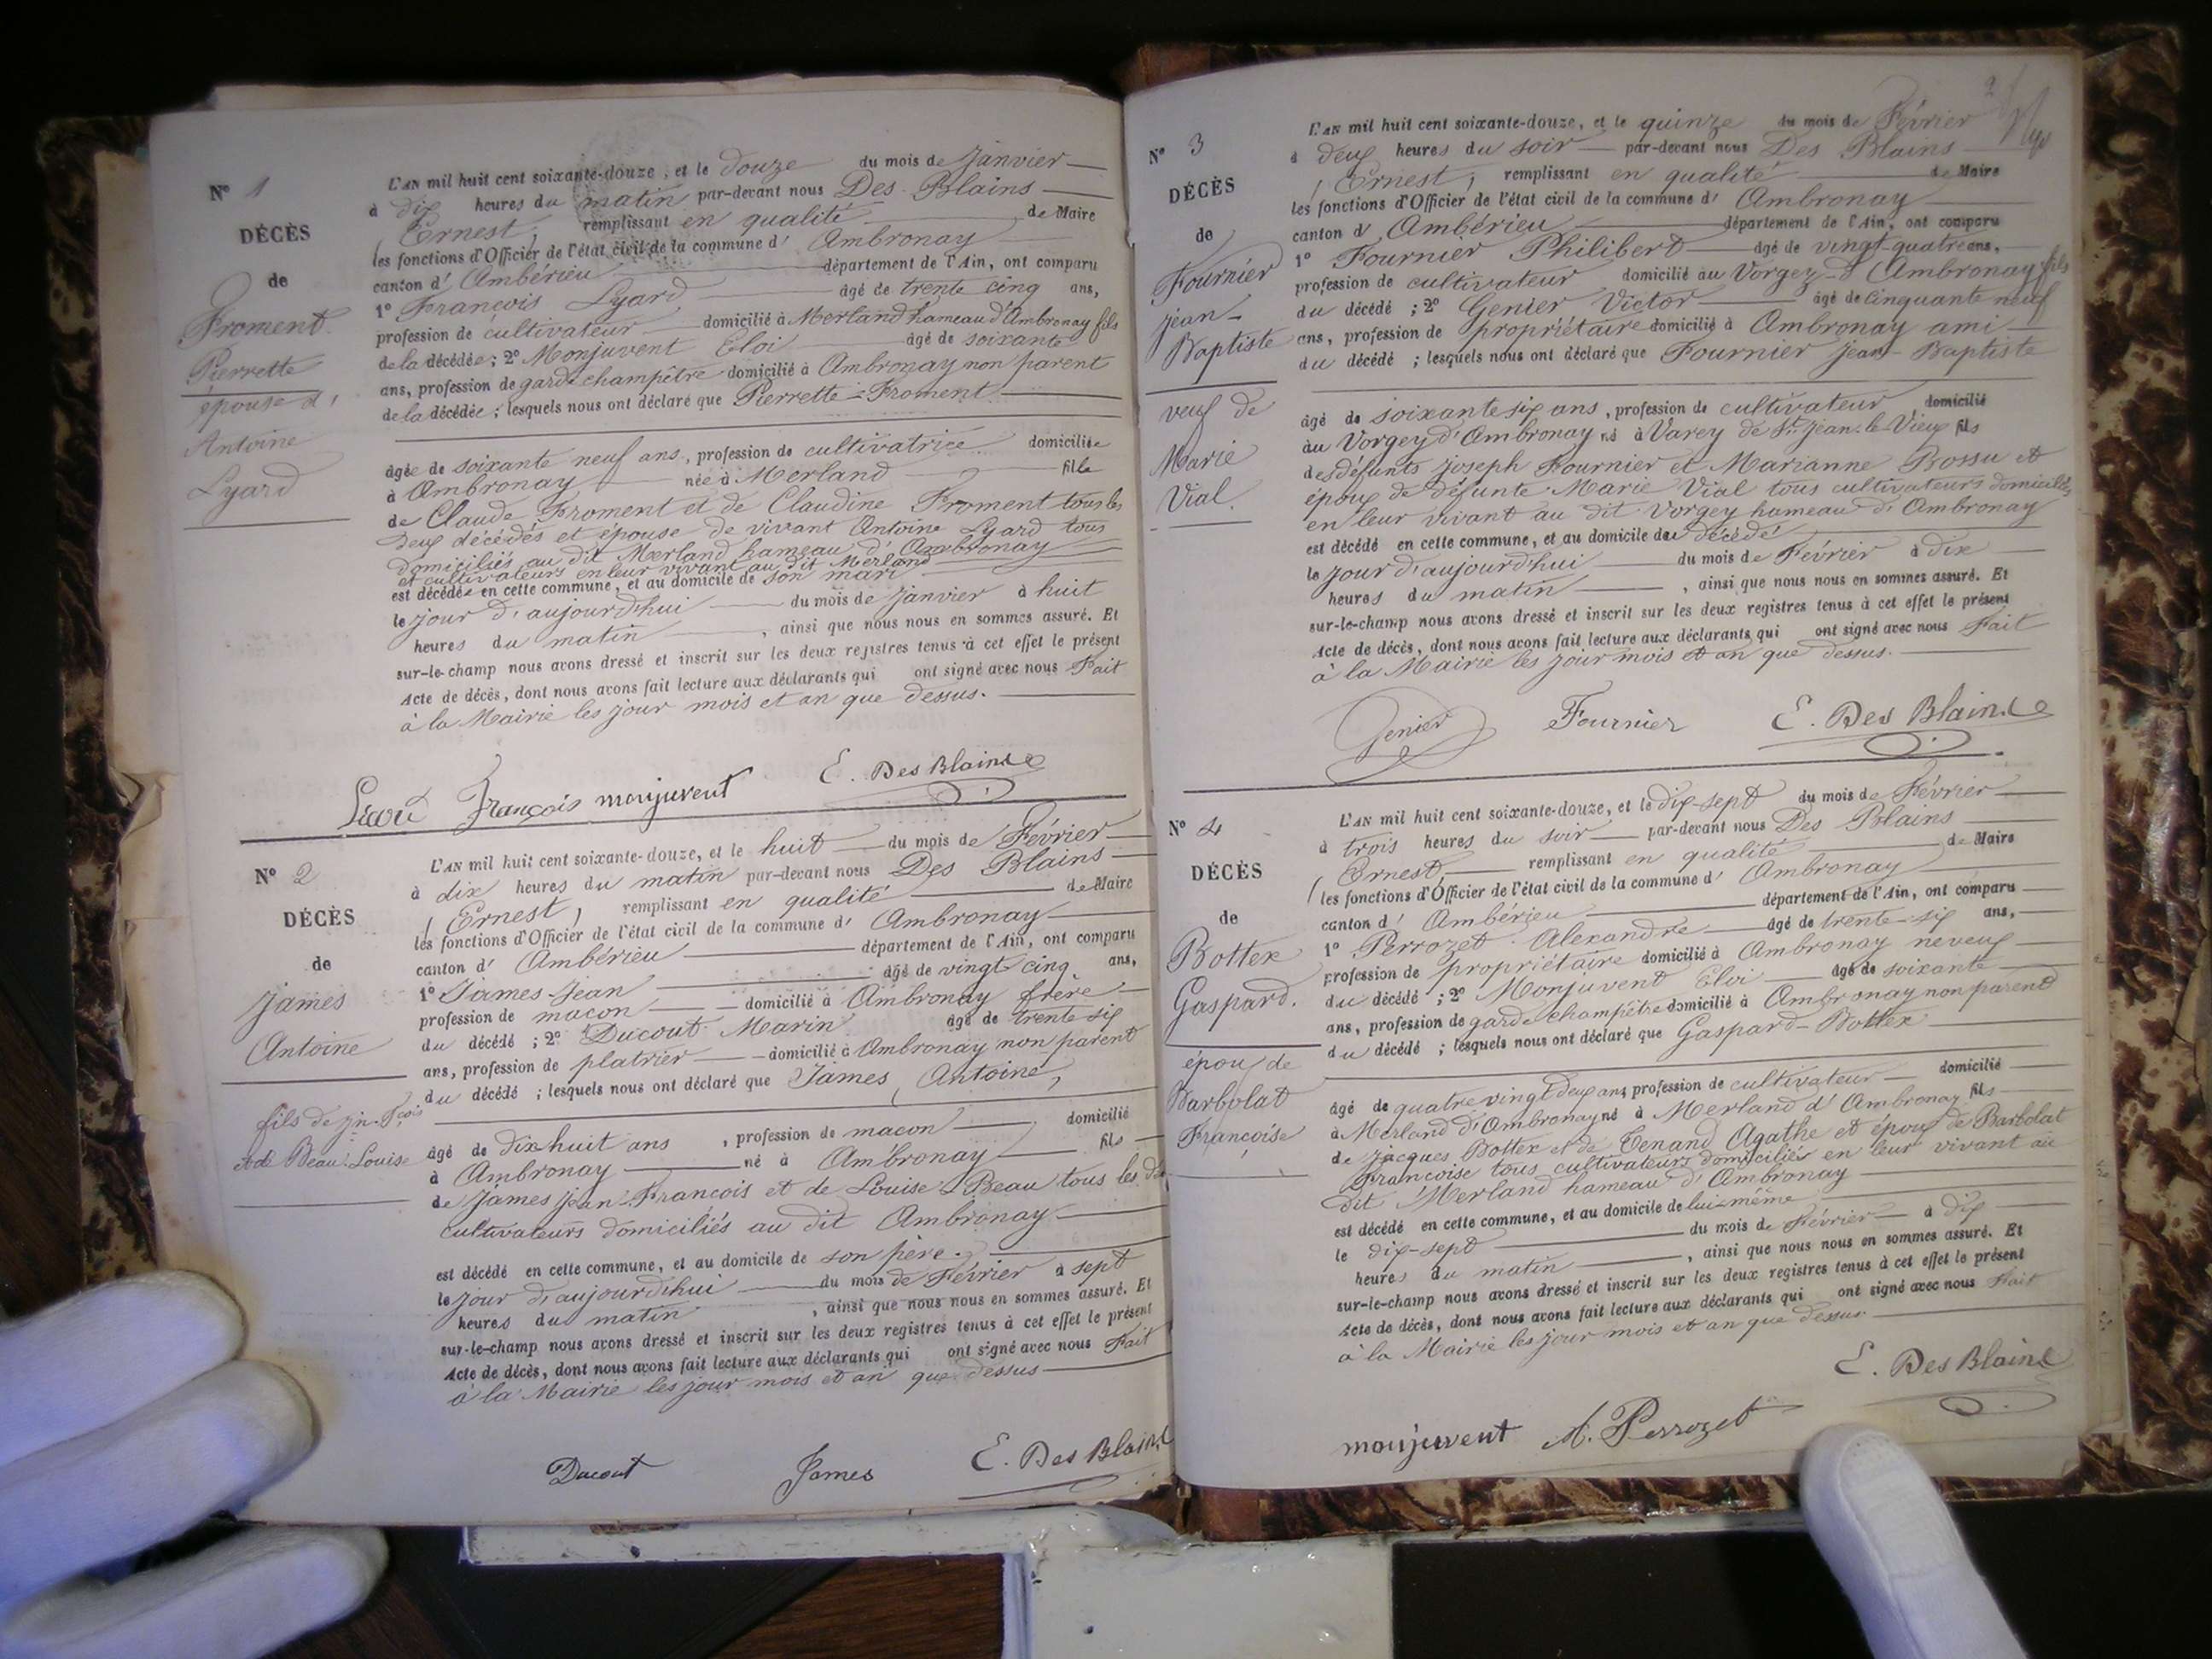 N° 1
DÉCÈS
de
Froment
Pierrette
épouse d'
Antoine
Lyard
L'AN mil huit cent soixante-douze, et le douze du mois de Janvier
à dix heures du matin par-devant nous Des Blains
(Ernest) remplissant en qualité de Maire
les fonctions d'Officier de l'état civil de la commune d' Ambronay
canton d' Ambérieu département de l'Ain, ont comparu
1° François Lyard âgé de trente cinq ans,
profession de cultivateur domicilié à Merland hameau d'Ambronay fils
de la décédée; 2° Monjuvent Eloi âgé de soixante
ans, profession de garde champêtre domicilié à Ambronay non parent
de la décédée; lesquels nous ont déclaré que Pierrette Froment
âgée de soixante neuf ans, profession de cultivatrice domiciliée
à Ambronay née à Merland fille
de Claude Froment et de Claudine Froment tous les
deux décédés et épouse de vivant Antoine Lyard tous
domiciliés au dit Merland hameau d'Ambronay
et cultivateurs en leur vivant au dit Merland
est décédée en cette commune, et au domicile de son mari
le jour d'aujourd'hui du mois de Janvier à huit
heures du matin, ainsi que nous nous en sommes assuré. Et
sur-le-champ nous avons dressé et inscrit sur les deux registres tenus à cet effet le présent
Acte de décès, dont nous avons fait lecture aux déclarants qui ont signé avec nous Fait
à la Mairie les jour mois et an que dessus.
François monjuvent E. Des Blains
N° 2
DÉCÈS
de
James
Antoine
fils de Jn. Fçois
et de Beau Louise
L'AN mil huit cent soixante-douze, et le huit du mois de Février
à dix heures du matin par-devant nous Des Blains
(Ernest) remplissant en qualité de Maire
les fonctions d'Officier de l'état civil de la commune d' Ambronay
canton d' Ambérieu département de l'Ain, ont comparu
1° James Jean âgé de vingt cinq ans,
profession de macon domicilié à Ambronay frère
du décédé; 2° Ducout Marin âgé de trente six
ans, profession de platrier domicilié à Ambronay non parent
du décédé; lesquels nous ont déclaré que James (Antoine)
âgé de dix huit ans, profession de macon domicilié
à Ambronay né à Ambronay fils
de James Jean François et de Louise Beau tous les
cultivateurs domiciliés au dit Ambronay
est décédé en cette commune, et au domicile de son père.
le jour d'aujourd'hui du mois de Février à sept
heures du matin, ainsi que nous nous en sommes assuré. Et
sur-le-champ nous avons dressé et inscrit sur les deux registres tenus à cet effet le présent
Acte de décès, dont nous avons fait lecture aux déclarants qui ont signé avec nous Fait
à la Mairie les jour mois et an que dessus
Ducout James E. Des Blains
N° 3
DÉCÈS
de
Fournier
Jean-
Baptiste
veuf de
Marie
Vial.
L'AN mil huit cent soixante-douze, et le quinze du mois de Février
à deux heures du soir par-devant nous Des Blains
(Ernest) remplissant en qualité de Maire
les fonctions d'Officier de l'état civil de la commune d' Ambronay
canton d' Ambérieu département de l'Ain, ont comparu
1° Fournier Philibert âgé de vingt quatre ans,
profession de cultivateur domicilié au Vorgey d'Ambronay fils
du décédé; 2° Genier Victor âgé de cinquante neuf
ans, profession de propriétaire domicilié à Ambronay ami
du décédé; lesquels nous ont déclaré que Fournier Jean-Baptiste
âgé de soixante six ans, profession de cultivateur domicilié
au Vorgey d'Ambronay né à Varey de St. Jean-le-Vieux fils
des défunts Joseph Fournier et Marianne Bossu et
époux de défunte Marie Vial tous cultivateurs domiciliés
en leur vivant au dit Vorgey hameau d'Ambronay
est décédé en cette commune, et au domicile du décédé
le jour d'aujourd'hui du mois de Février à dix
heures du matin, ainsi que nous nous en sommes assuré. Et
sur-le-champ nous avons dressé et inscrit sur les deux registres tenus à cet effet le présent
Acte de décès, dont nous avons fait lecture aux déclarants qui ont signé avec nous Fait
à la Mairie les jour mois et an que dessus.
Genier Fournier E. Des Blains
N° 4
DÉCÈS
de
Bottex
Gaspard.
époux de
Barbolat
Françoise
L'AN mil huit cent soixante-douze, et le dix-sept du mois de Février
à trois heures du soir par-devant nous Des Blains
(Ernest) remplissant en qualité de Maire
les fonctions d'Officier de l'état civil de la commune d' Ambronay
canton d' Ambérieu département de l'Ain, ont comparu
1° Perrozet Alexandre âgé de trente-six ans,
profession de propriétaire domicilié à Ambronay neveux
du décédé; 2° Monjuvent Eloi âgé de soixante
ans, profession de garde champêtre domicilié à Ambronay non parent
du décédé; lesquels nous ont déclaré que Gaspard-Bottex
âgé de quatre vingt deux ans profession de cultivateur domicilié
à Merland d'Ambronay né à Merland d'Ambronay fils
de Jacques Bottex et de Tenand Agathe et époux de Barbolat
Françoise tous cultivateurs domiciliés en leur vivant au
dit Merland hameau d'Ambronay
est décédé en cette commune, et au domicile de lui-même
le dix-sept du mois de Février à dix
heures du matin, ainsi que nous nous en sommes assuré. Et
sur-le-champ nous avons dressé et inscrit sur les deux registres tenus à cet effet le présent
Acte de décès, dont nous avons fait lecture aux déclarants qui ont signé avec nous Fait
à la Mairie les jour mois et an que dessus
E. Des Blains
monjuvent A. Perrozet